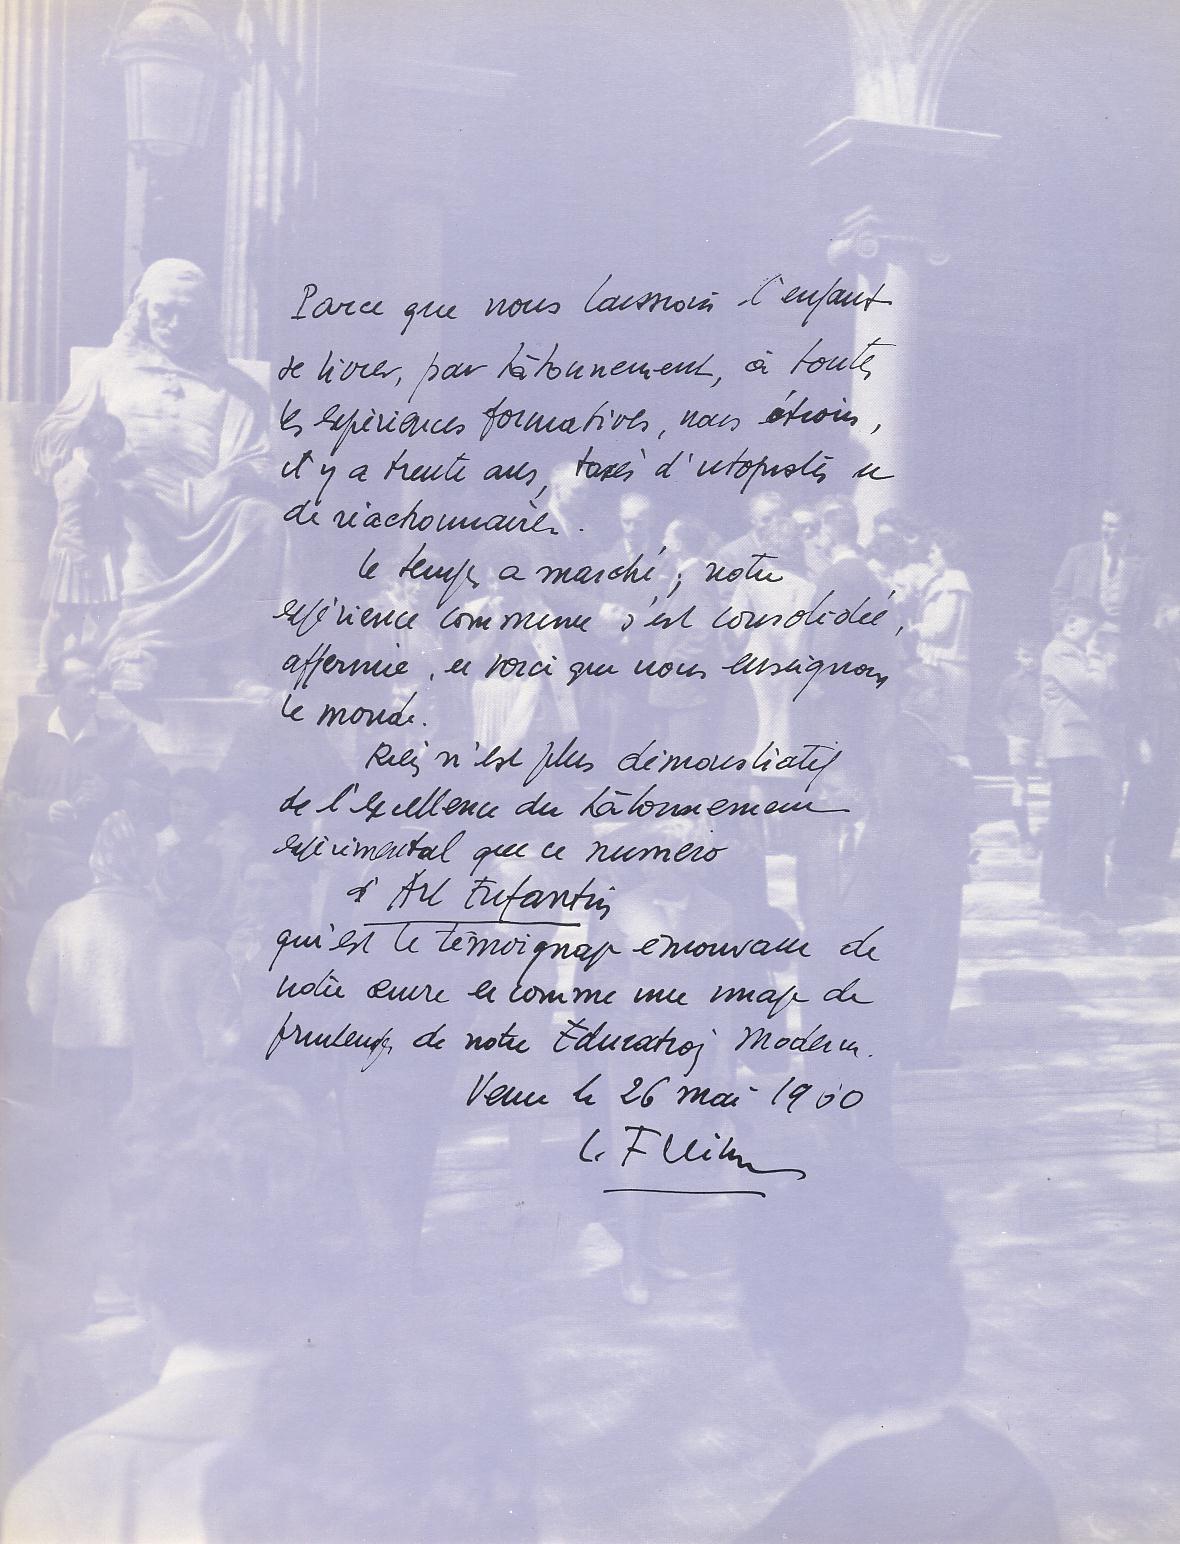 Parce que nous laissions l'enfant
se livrer, par tâtonnement, à toutes
les expériences formatives, nous étions,
il y a trente ans, taxés d'utopistes et
de réactionnaires.
Le temps a marché ; notre
expérience commune s'est consolidée,
affermie, et voici que nous enseignons
le monde.
Rien n'est plus démonstratif
de l'excellence du tâtonnement
expérimental que ce numéro
d'Art Enfantin
qui est le témoignage émouvant de
notre œuvre et comme une image de
printemps de notre Education Moderne.
Vence le 26 mai 1960
C. Freinet